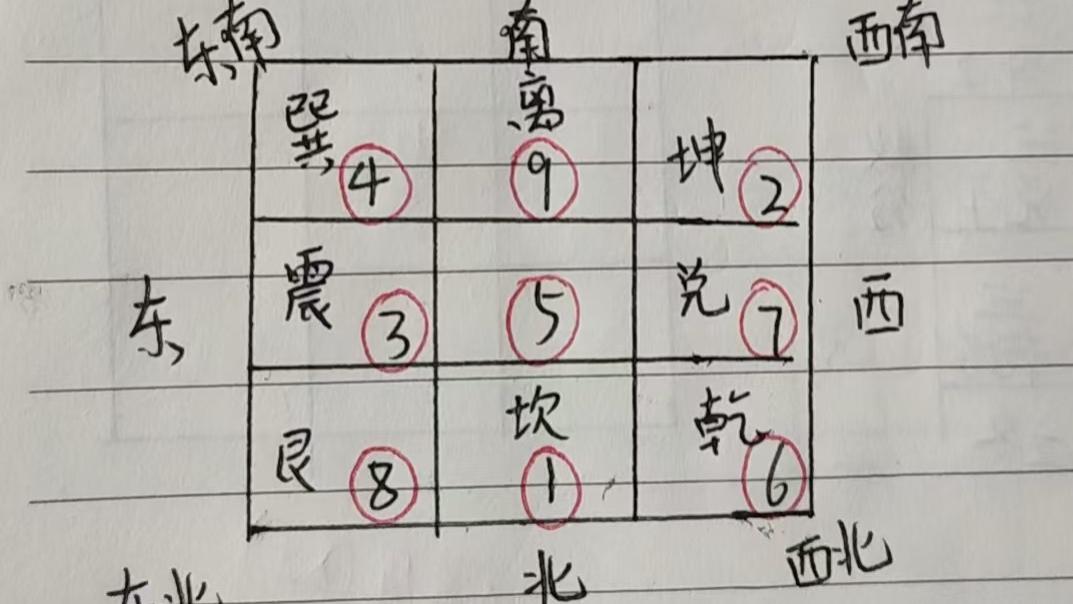 东南 南 西南
巽 离 坤
4 9 2
东 震 兑 西
3 5 7
艮 坎 乾
8 1 6
东北 北 西北